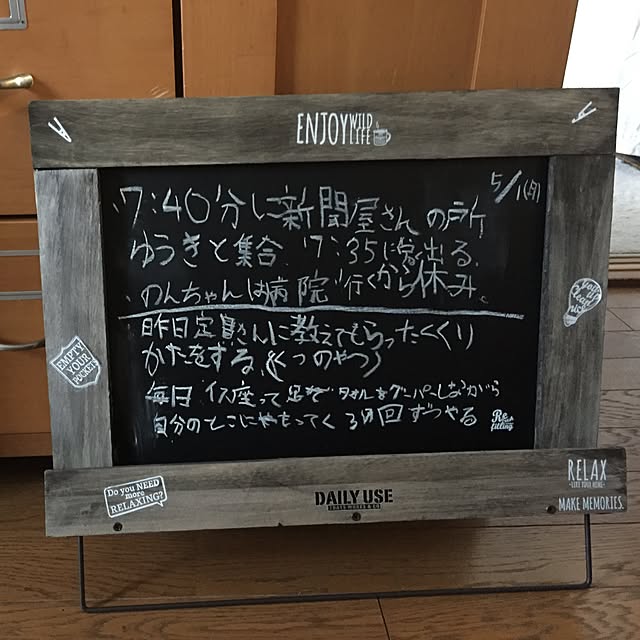 ENJOY WILD LIFE
5/1(月)
7:40分に新聞屋さんの所
ゆうきと集合 7:35に家出る。
のんちゃんは病院行くから休み。
昨日定員さんに教えてもらったたくくり
かたをする。(くつのやつ)
毎日 イス座って足でタオルをグーパーしながら
自分のとこにやもってく 30回ずつやる
Re filling
EMPTY YOUR POCKETS
Do you NEED more RELAXING?
DAILY USE
RELAX
MAKE MEMORIES.